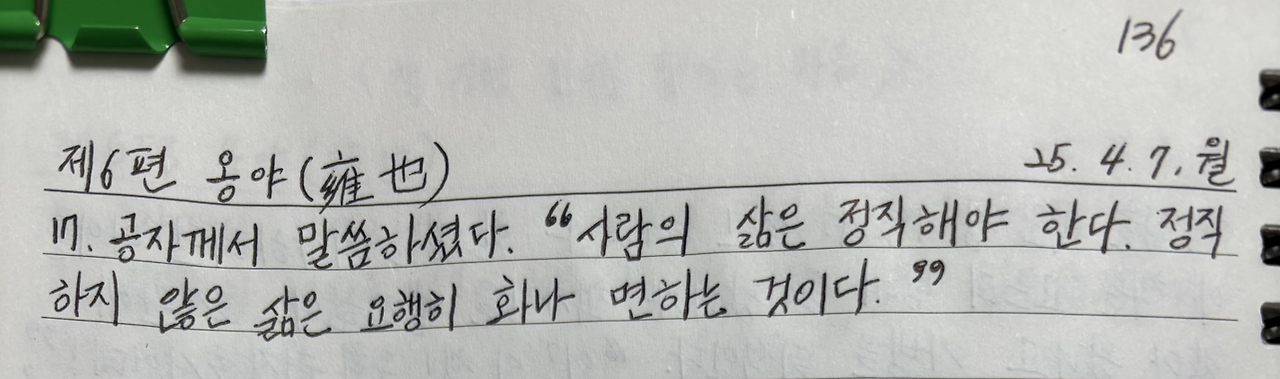 136
제6편 옹야(雍也) 25. 4. 7. 월
17. 공자께서 말씀하셨다. "사람의 삶은 정직해야 한다. 정직
하지 않은 삶은 요행히 화나 면하는 것이다."